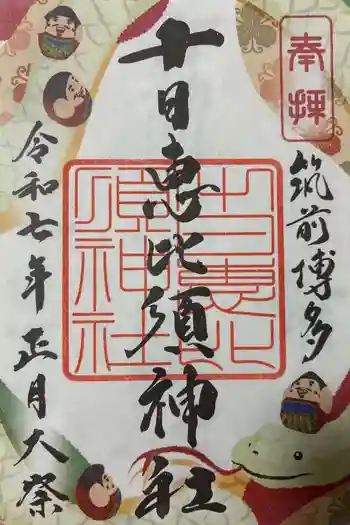 奉拝
筑前博多
十日恵比須神社
十日恵比須神社
令和七年正月大祭